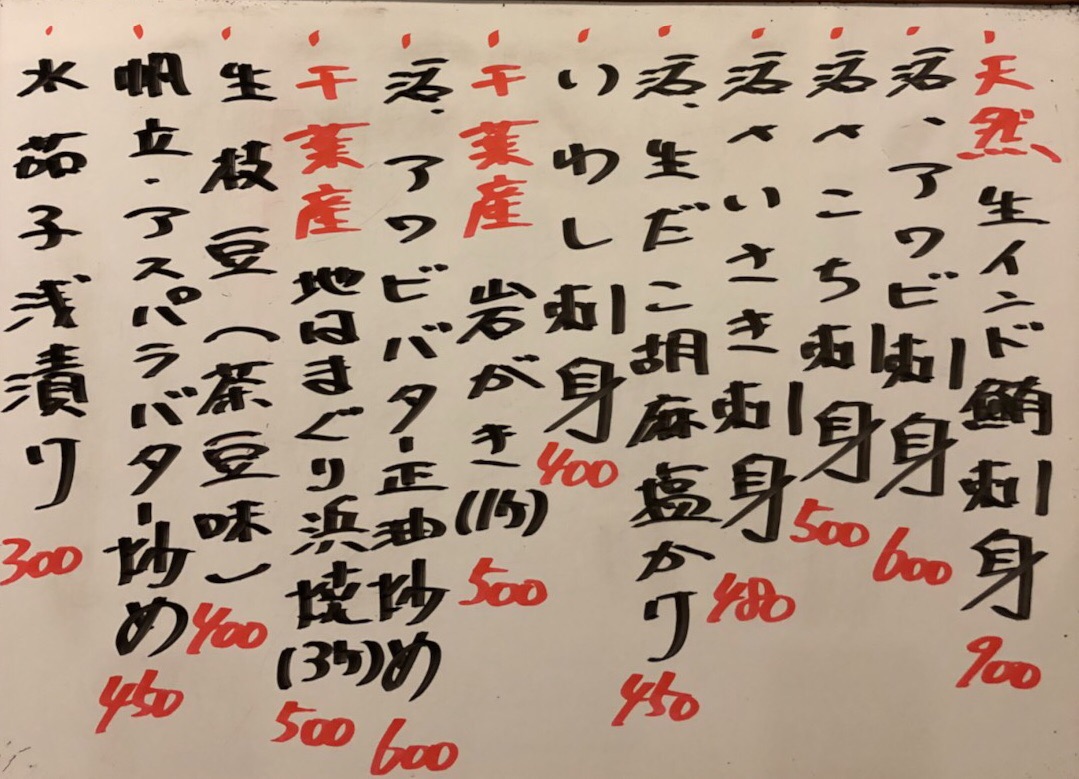 天然生インド鮪刺身 900
活、アワビ刺身 600
活、こち刺身 500
活、いさき刺身 480
活、生だこ胡麻塩かり 450
いわし刺身 400
千葉産岩がき(1ケ) 500
活、アワビバター正油炒め 600
千葉産地はまぐり浜焼(3ケ) 500
生枝豆(茶豆味) 400
帆立・アスパラバター炒め 450
水茄子浅漬り 300